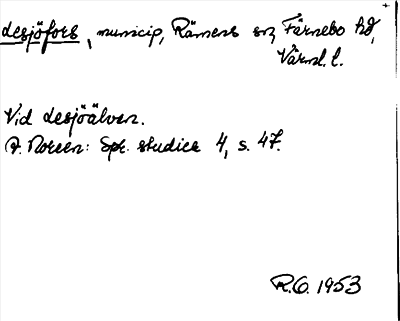 Lesjöfors, municip, Rämens sn, Färnebo hd,
Värml. l.
Vid Lesjöälven.
A. Noreen: Spr. studier 4, s. 47.
R.O. 1953